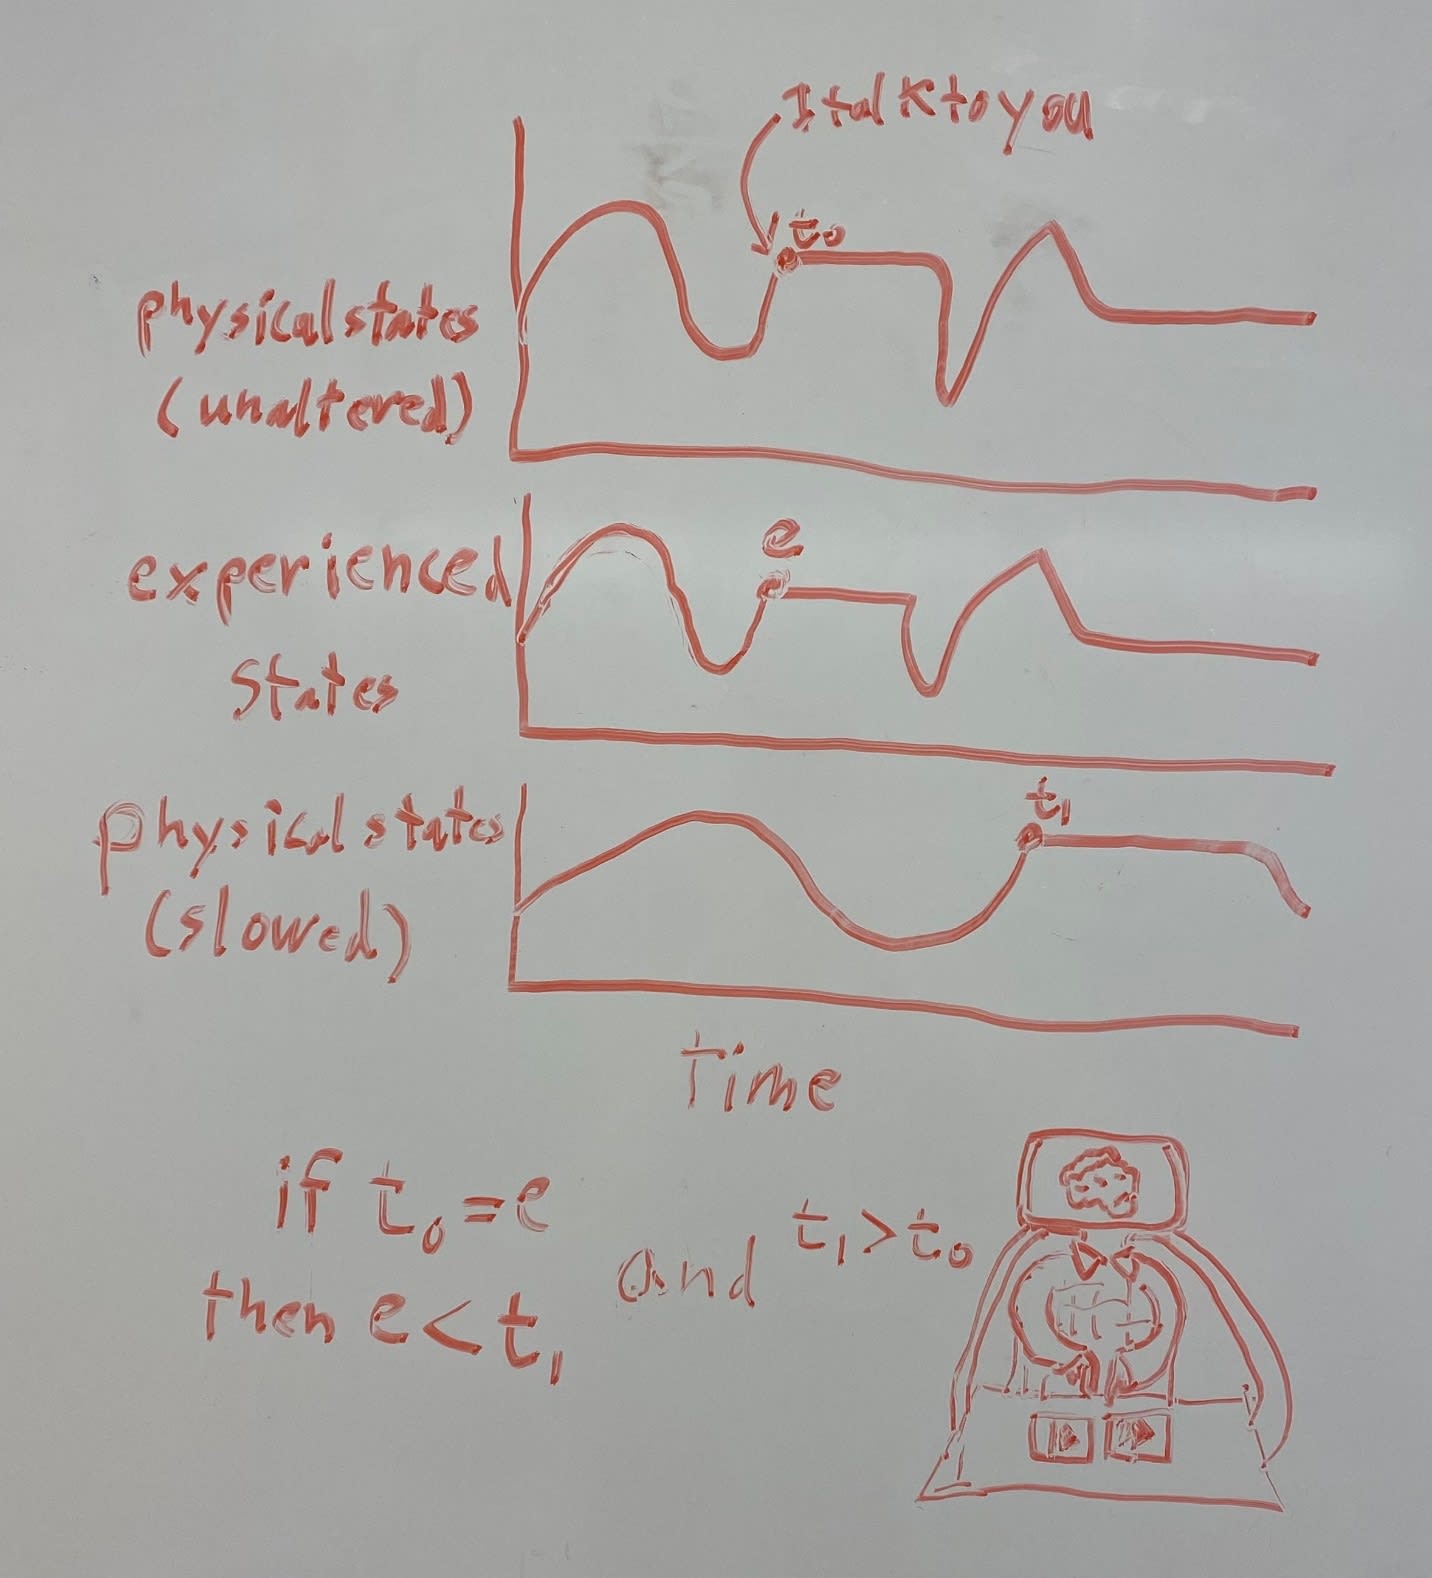 I talk to you
t₀
physical states
(unaltered)
e
experienced
states
t₁
physical states
(slowed)
Time
if t₀ = e
and t₁ > t₀
then e < t₁